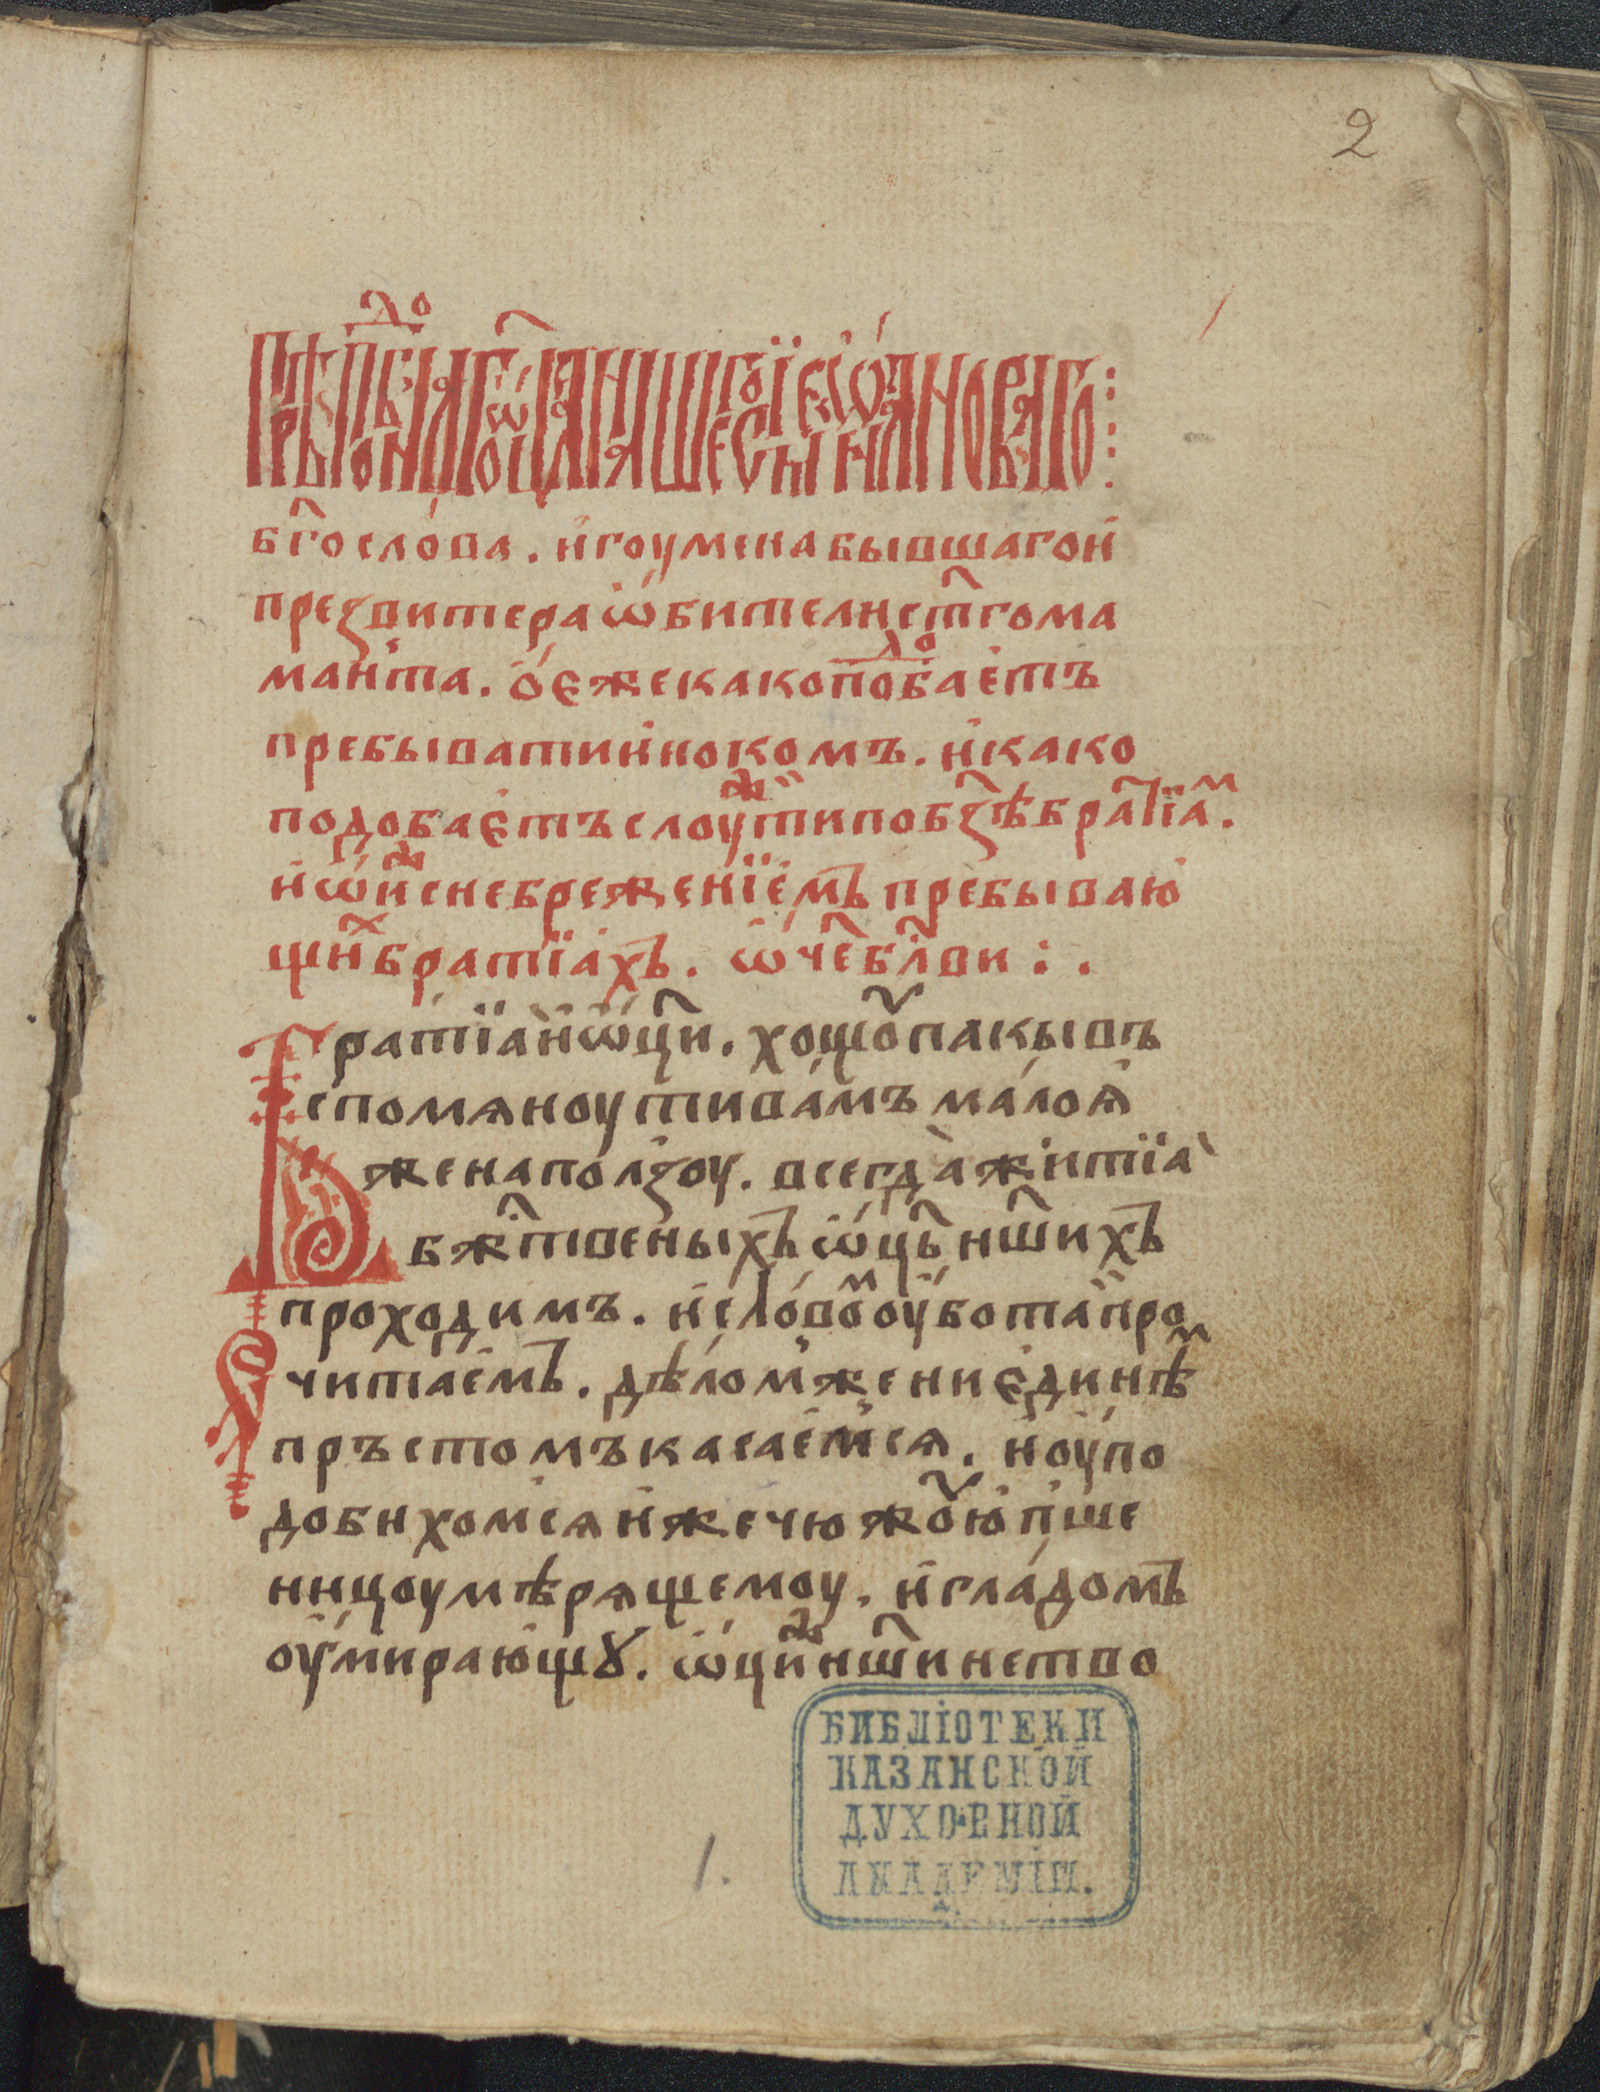 2
Прѣпⷣобнаго ѿца нашего їеросхимонаха Сѷмеѡна новаго
бг҃ослова. игоумена бывшаго и
презвитера ѡбители ст҃го ма
манта. ѡ еже како поⷣбаетъ
пребывати инокомъ. и како
подобаетъ слоуⷤти по бзѣ братїаⷨ.
и ѡ иⷤ с небрежениїемъ пребываю
щиⷯ братїахъ. ѡч҃е бл҃ви :.
Братїа и ѡц҃и. хощоу пакы въ
спомяноути вамъ малоя
же на ползоу. всегда житїа
бжⷭ҇твеныхъ ѡц҃ь нш҃ихъ
проходимъ. и словоⷨ оубо та про
читаемъ. дѣлом же ни единѣⷨ
пръстомъ касаемся. и оупо
добихомся иже чюжоую пше
ницоу мѣрящемоу. и гладомъ
оумирающꙋ. ѡц҃иⷤ нш҃и нество
БИБЛІОТЕКИ
КАЗАНСКОЙ
ДУХОВНОЙ
АКАДЕМІИ.
1.